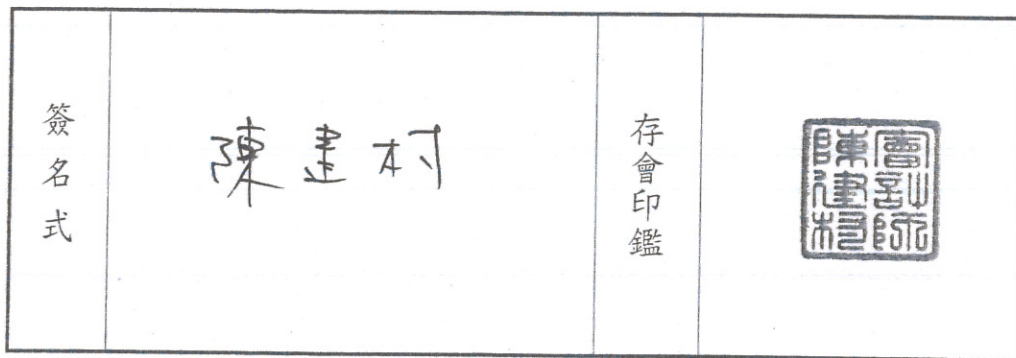 簽名式
陳建村
存會印鑑
會計師
陳建村